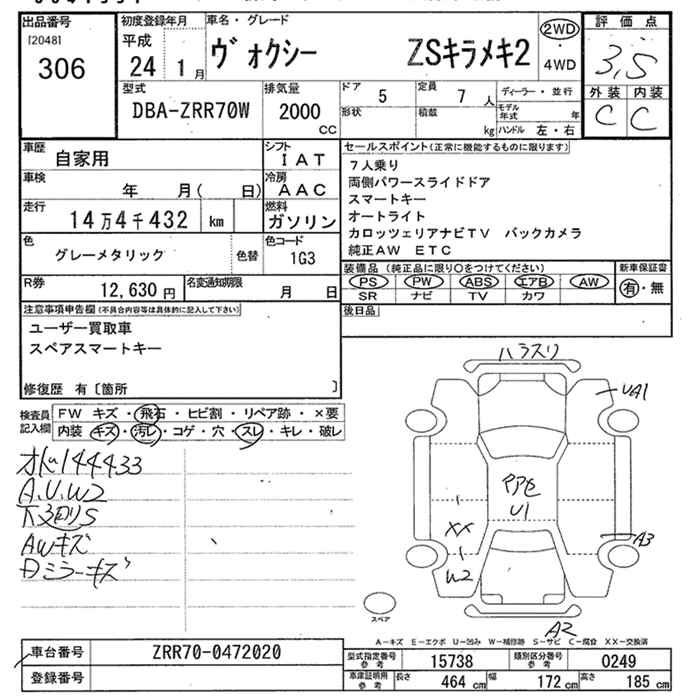 出品番号
[20481
306
初度登録年月
平成
24 1月
車名・グレード
ヴォクシー ZSキラメキ2
2WD
・
4WD
評価点
3,5
外装 内装
C C
型式
DBA-ZRR70W
排気量
2000
CC
ドア 5
定員 7人
ディーラー・並行
形状
積載 kg
モデル年式 年
ハンドル 左・右
車歴
自家用
シフト
IAT
車検
年 月( 日)
冷房
AAC
走行
14万4千432 km
燃料
ガソリン
色
グレーメタリック
色替
色コード
1G3
R券
12,630円
名変通知期限
月 日
セールスポイント(正常に機能するものに限ります)
7人乗り
両側パワースライドドア
スマートキー
オートライト
カロッツェリアナビTV バックカメラ
純正AW ETC
装備品(純正品に限り○をつけてください)
PS PW ABS エアB AW
SR ナビ TV カワ
新車保証書
有・無
後日品
注意事項申告欄(不具合内容等は具体的に記入して下さい)
ユーザー買取車
スペアスマートキー
修復歴 有〔箇所 〕
検査員記入欄
FW キズ・飛石・ヒビ割・リペア跡・×要
内装 キズ・汚レ・コゲ・穴・スレ・キレ・破レ
オド144433
A.U.W2
下廻りS
AWキズ
Dミラーキズ
ハラスリ
UA1
PPE
U1
XX
W2
A3
A2
スペア
A-キズ E-エクボ U-凹み W-補修跡 S-サビ C-腐食 XX-交換済
車台番号
ZRR70-0472020
登録番号
型式指定番号
参考
15738
類別区分番号
参考
0249
車庫証明用
参考
長さ 464 cm
幅 172 cm
高さ 185 cm